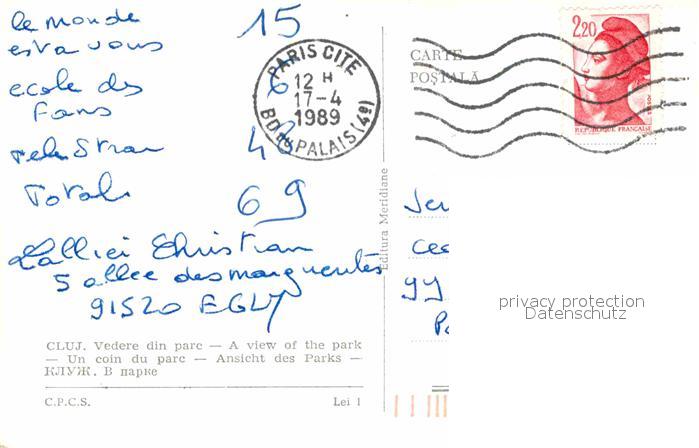 le monde
est a vous 15
ecole des
fans 6
48
Total 69
Christian
5 allée des marguerites
91520 EGLY
CLUJ. Vedere din parc — A view of the park
— Un coin du parc — Ansicht des Parks —
КЛУЖ. В парке
C.P.C.S. Lei 1
Editura Meridiane
PARIS CITE
12 H
17-4
1989
BD DU PALAIS (4e)
CARTE
POȘTALĂ
2,20
REPUBLIQUE FRANCAISE
99
privacy protection
Datenschutz